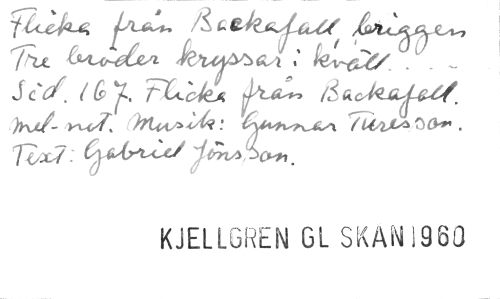 Flicka från Backafall, briggen
Tre bröder kryssar i kväll. . . .
Sid. 167. Flicka från Backafall.
mel-not. Musik: Gunnar Turesson.
Text: Gabriel Jönsson.
KJELLGREN GL SKAN 1960